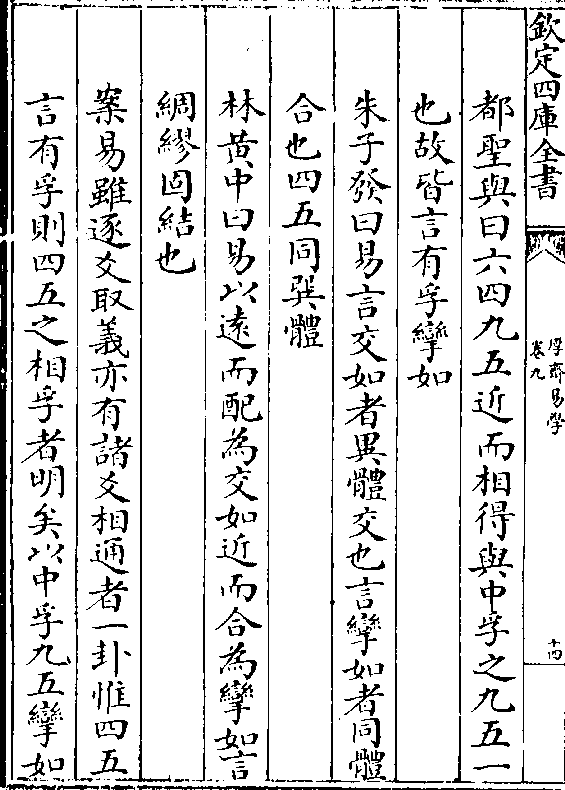 欽定四庫全書
厚齋易學
卷九
十四
都聖與曰六四九五近而相得與中孚之九五一
也故皆言有孚攣如
朱子發曰易言交如者異體交也言攣如者同體
合也四五同巽體
林黄中曰易以遠而配為交如近而合為攣如言
綢繆固結也
案易雖逐爻取義亦有諸爻相通者一卦惟四五
言有孚則四五之相孚者明矣以中孚九五攣如